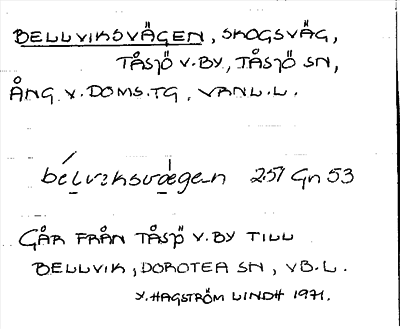 BELLVIKSVÄGEN, SKOGSVÄG,
TÅSJÖ V.BY, TÅSJÖ SN,
ÅNG. V. DOMS.TG, VANL.L.
bélviksvægen 251 Gn 53
GÅR FRÅN TÅSJÖ V.BY TILL
BELLVIK, DOROTEA SN, VB.L.
V. HAGSTRÖM LINDH 1971.